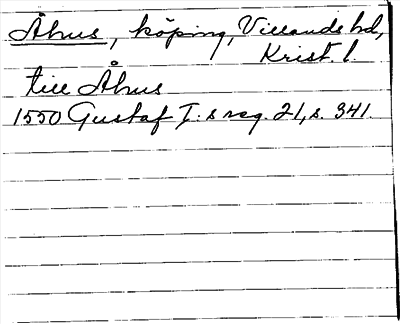 Åhus, köping, Villands hd,
Krist. l.
till Åhus
1550 Gustaf I:s reg. 21, s. 341.